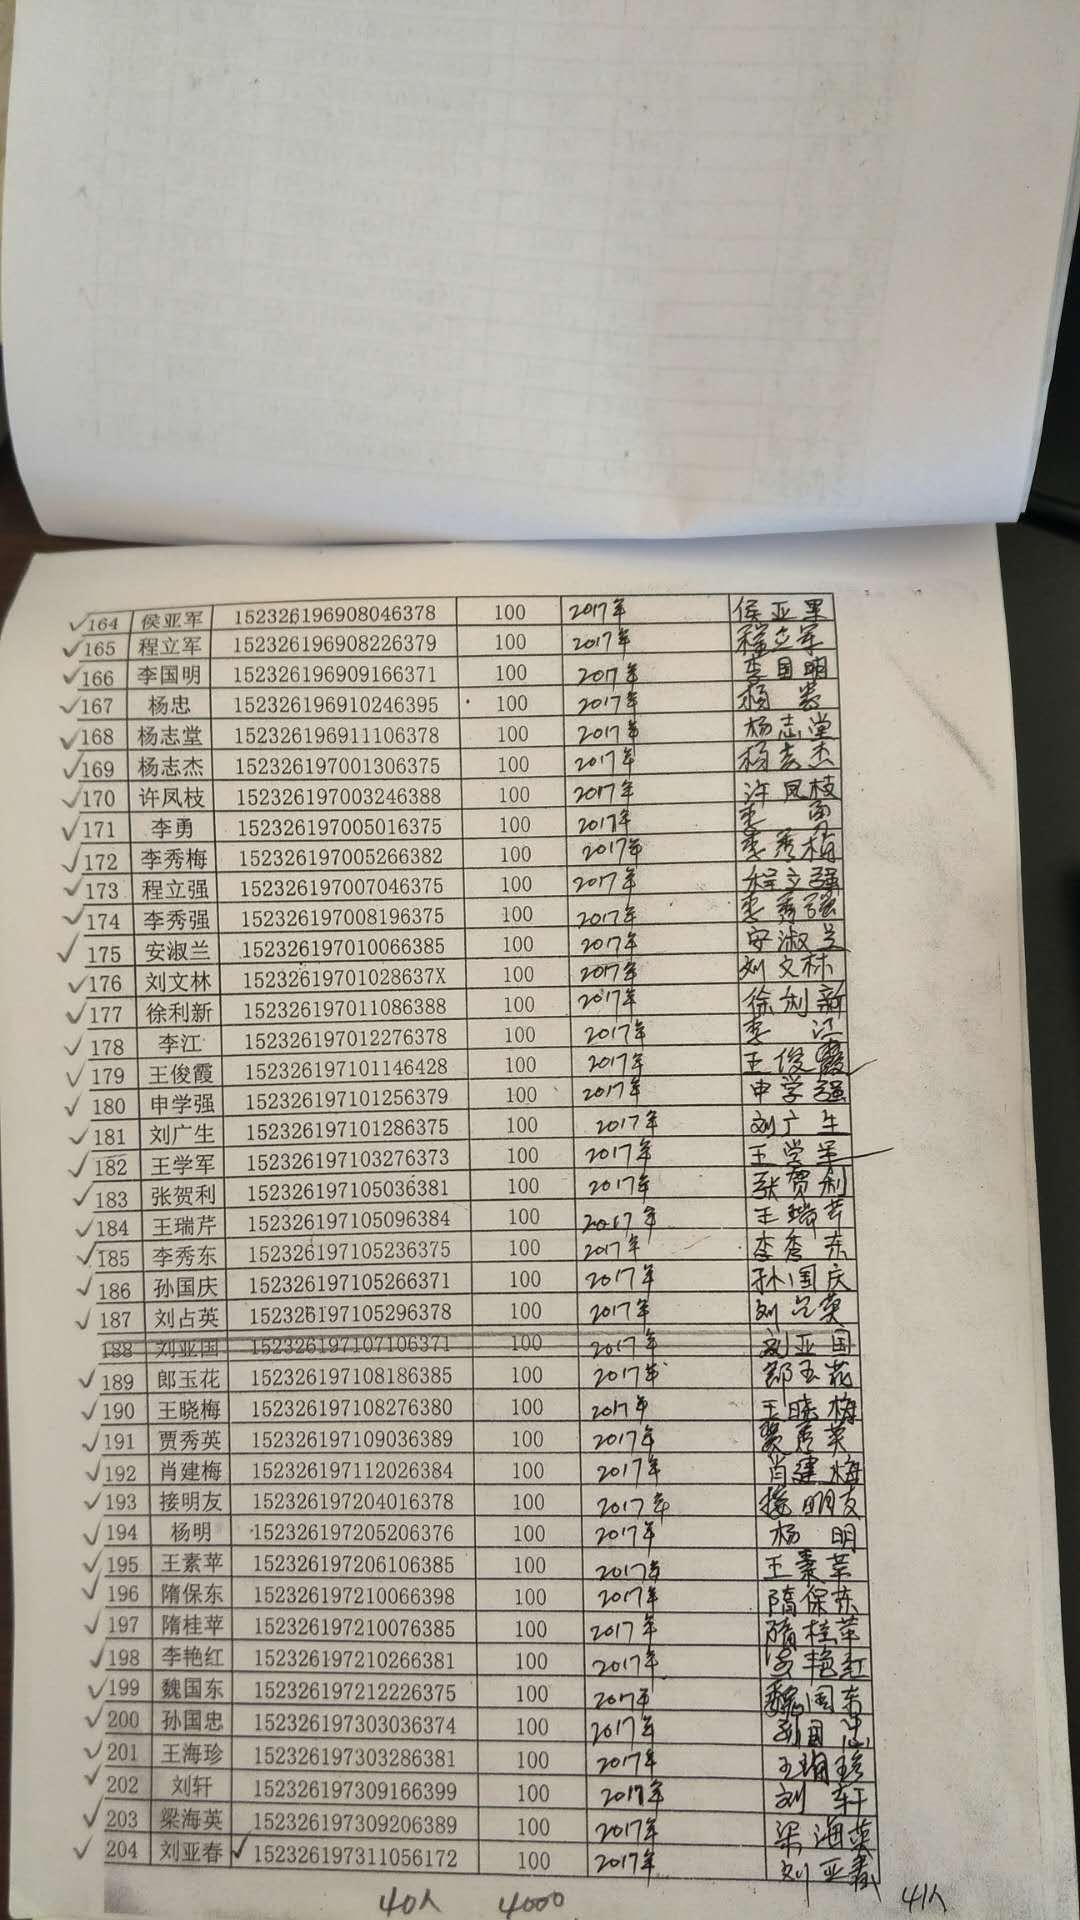 164 侯亚军 152326196908046378 100 2017年 侯亚军
165 程立军 152326196908226379 100 2017年 程立军
166 李国明 152326196909166371 100 2017年 李国明
167 杨忠 152326196910246395 100 2017年 杨忠
168 杨志堂 152326196911106378 100 2017年 杨志堂
169 杨志杰 152326197001306375 100 2017年 杨志杰
170 许凤枝 152326197003246388 100 2017年 许凤枝
171 李勇 152326197005016375 100 2017年 李勇
172 李秀梅 152326197005266382 100 2017年 李秀梅
173 程立强 152326197007046375 100 2017年 程立强
174 李秀强 152326197008196375 100 2017年 李秀强
175 安淑兰 152326197010066385 100 2017年 安淑兰
176 刘文林 15232619701028637X 100 2017年 刘文林
177 徐利新 152326197011086388 100 2017年 徐利新
178 李江 152326197012276378 100 2017年 李江
179 王俊霞 152326197101146428 100 2017年 王俊霞
180 申学强 152326197101256379 100 2017年 申学强
181 刘广生 152326197101286375 100 2017年 刘广生
182 王学军 152326197103276373 100 2017年 王学军
183 张贺利 152326197105036381 100 2017年 张贺利
184 王瑞芹 152326197105096384 100 2017年 王瑞芹
185 李秀东 152326197105236375 100 2017年 李秀东
186 孙国庆 152326197105266371 100 2017年 孙国庆
187 刘占英 152326197105296378 100 2017年 刘占英
188 刘亚国 152326197107106371 100 2017年 刘亚国
189 郎玉花 152326197108186385 100 2017年 郎玉花
190 王晓梅 152326197108276380 100 2017年 王晓梅
191 贾秀英 152326197109036389 100 2017年 贾秀英
192 肖建梅 152326197112026384 100 2017年 肖建梅
193 接明友 152326197204016378 100 2017年 接明友
194 杨明 152326197205206376 100 2017年 杨明
195 王素苹 152326197206106385 100 2017年 王素苹
196 隋保东 152326197210066398 100 2017年 隋保东
197 隋桂苹 152326197210076385 100 2017年 隋桂苹
198 李艳红 152326197210266381 100 2017年 李艳红
199 魏国东 152326197212226375 100 2017年 魏国东
200 孙国忠 152326197303036374 100 2017年 孙国忠
201 王海珍 152326197303286381 100 2017年 王海珍
202 刘轩 152326197309166399 100 2017年 刘轩
203 梁海英 152326197309206389 100 2017年 梁海英
204 刘亚春 152326197311056172 100 2017年 刘亚春
40人 4000 41人